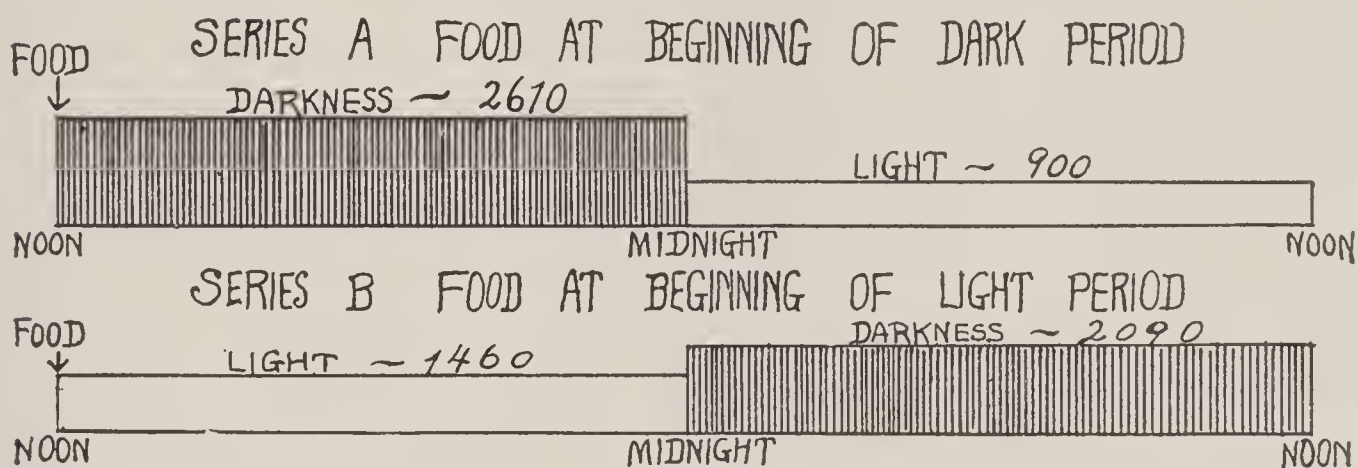 SERIES A FOOD AT BEGINNING OF DARK PERIOD
FOOD
DARKNESS ~ 2610
LIGHT ~ 900
NOON MIDNIGHT NOON
SERIES B FOOD AT BEGINNING OF LIGHT PERIOD
FOOD
LIGHT ~ 1460
DARKNESS ~ 2090
NOON MIDNIGHT NOON